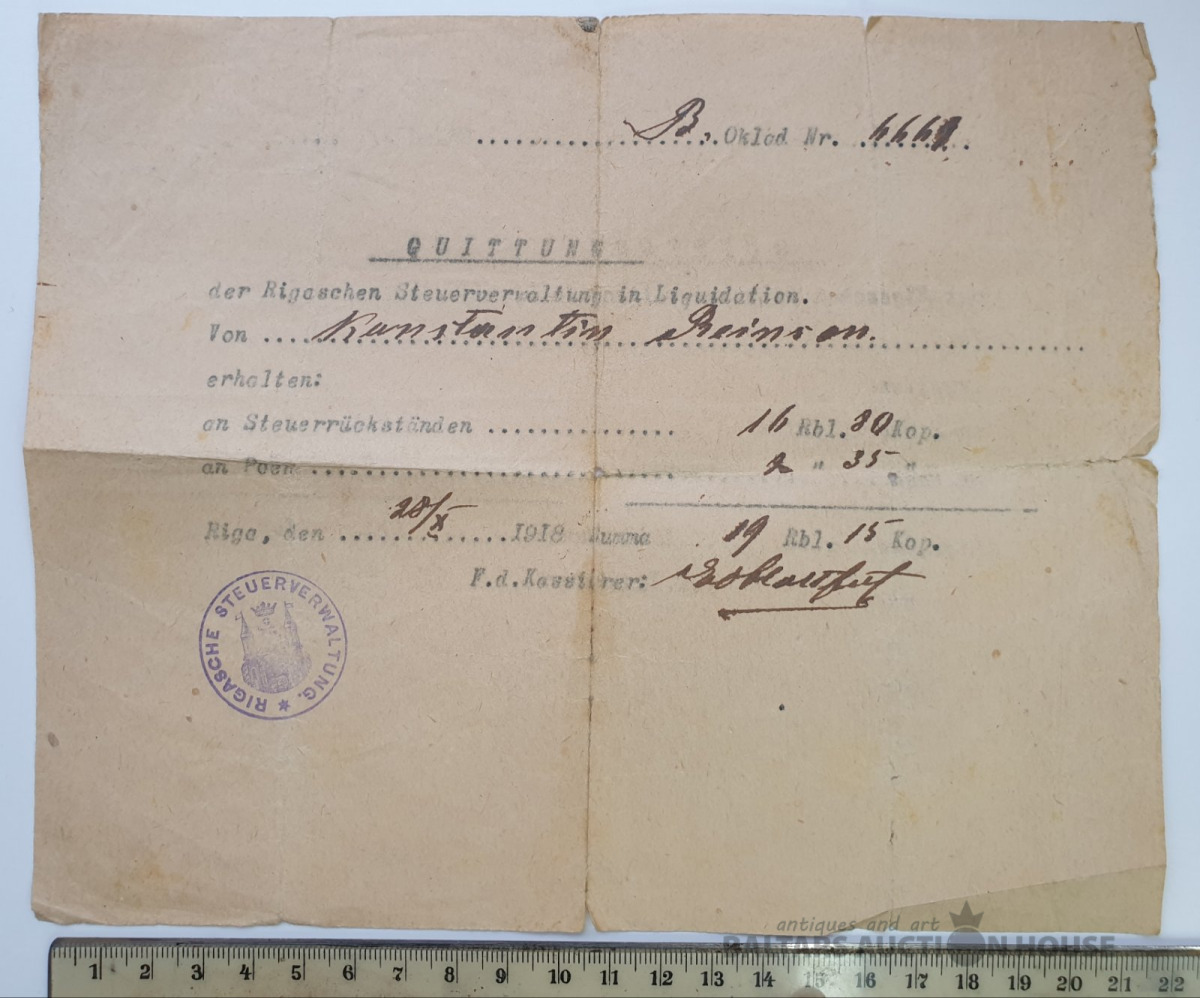 B. Oklad Nr.
QUITTUNG
der Rigaschen Steuerverwaltung in Liquidation.
Von Konstantin Reinson.
erhalten:
an Steuerrückständen 16 Rbl. 80 Kop.
an Poen 2 " 35 "
Riga, den 28/X 1918 Summa 19 Rbl. 15 Kop.
F.d.Kassierer:
RIGASCHE STEUERVERWALTUNG.
antiques and art
BALTARS AUCTION HOUSE
1 2 3 4 5 6 7 8 9 10 11 12 13 14 15 16 17 18 19 20 21 22